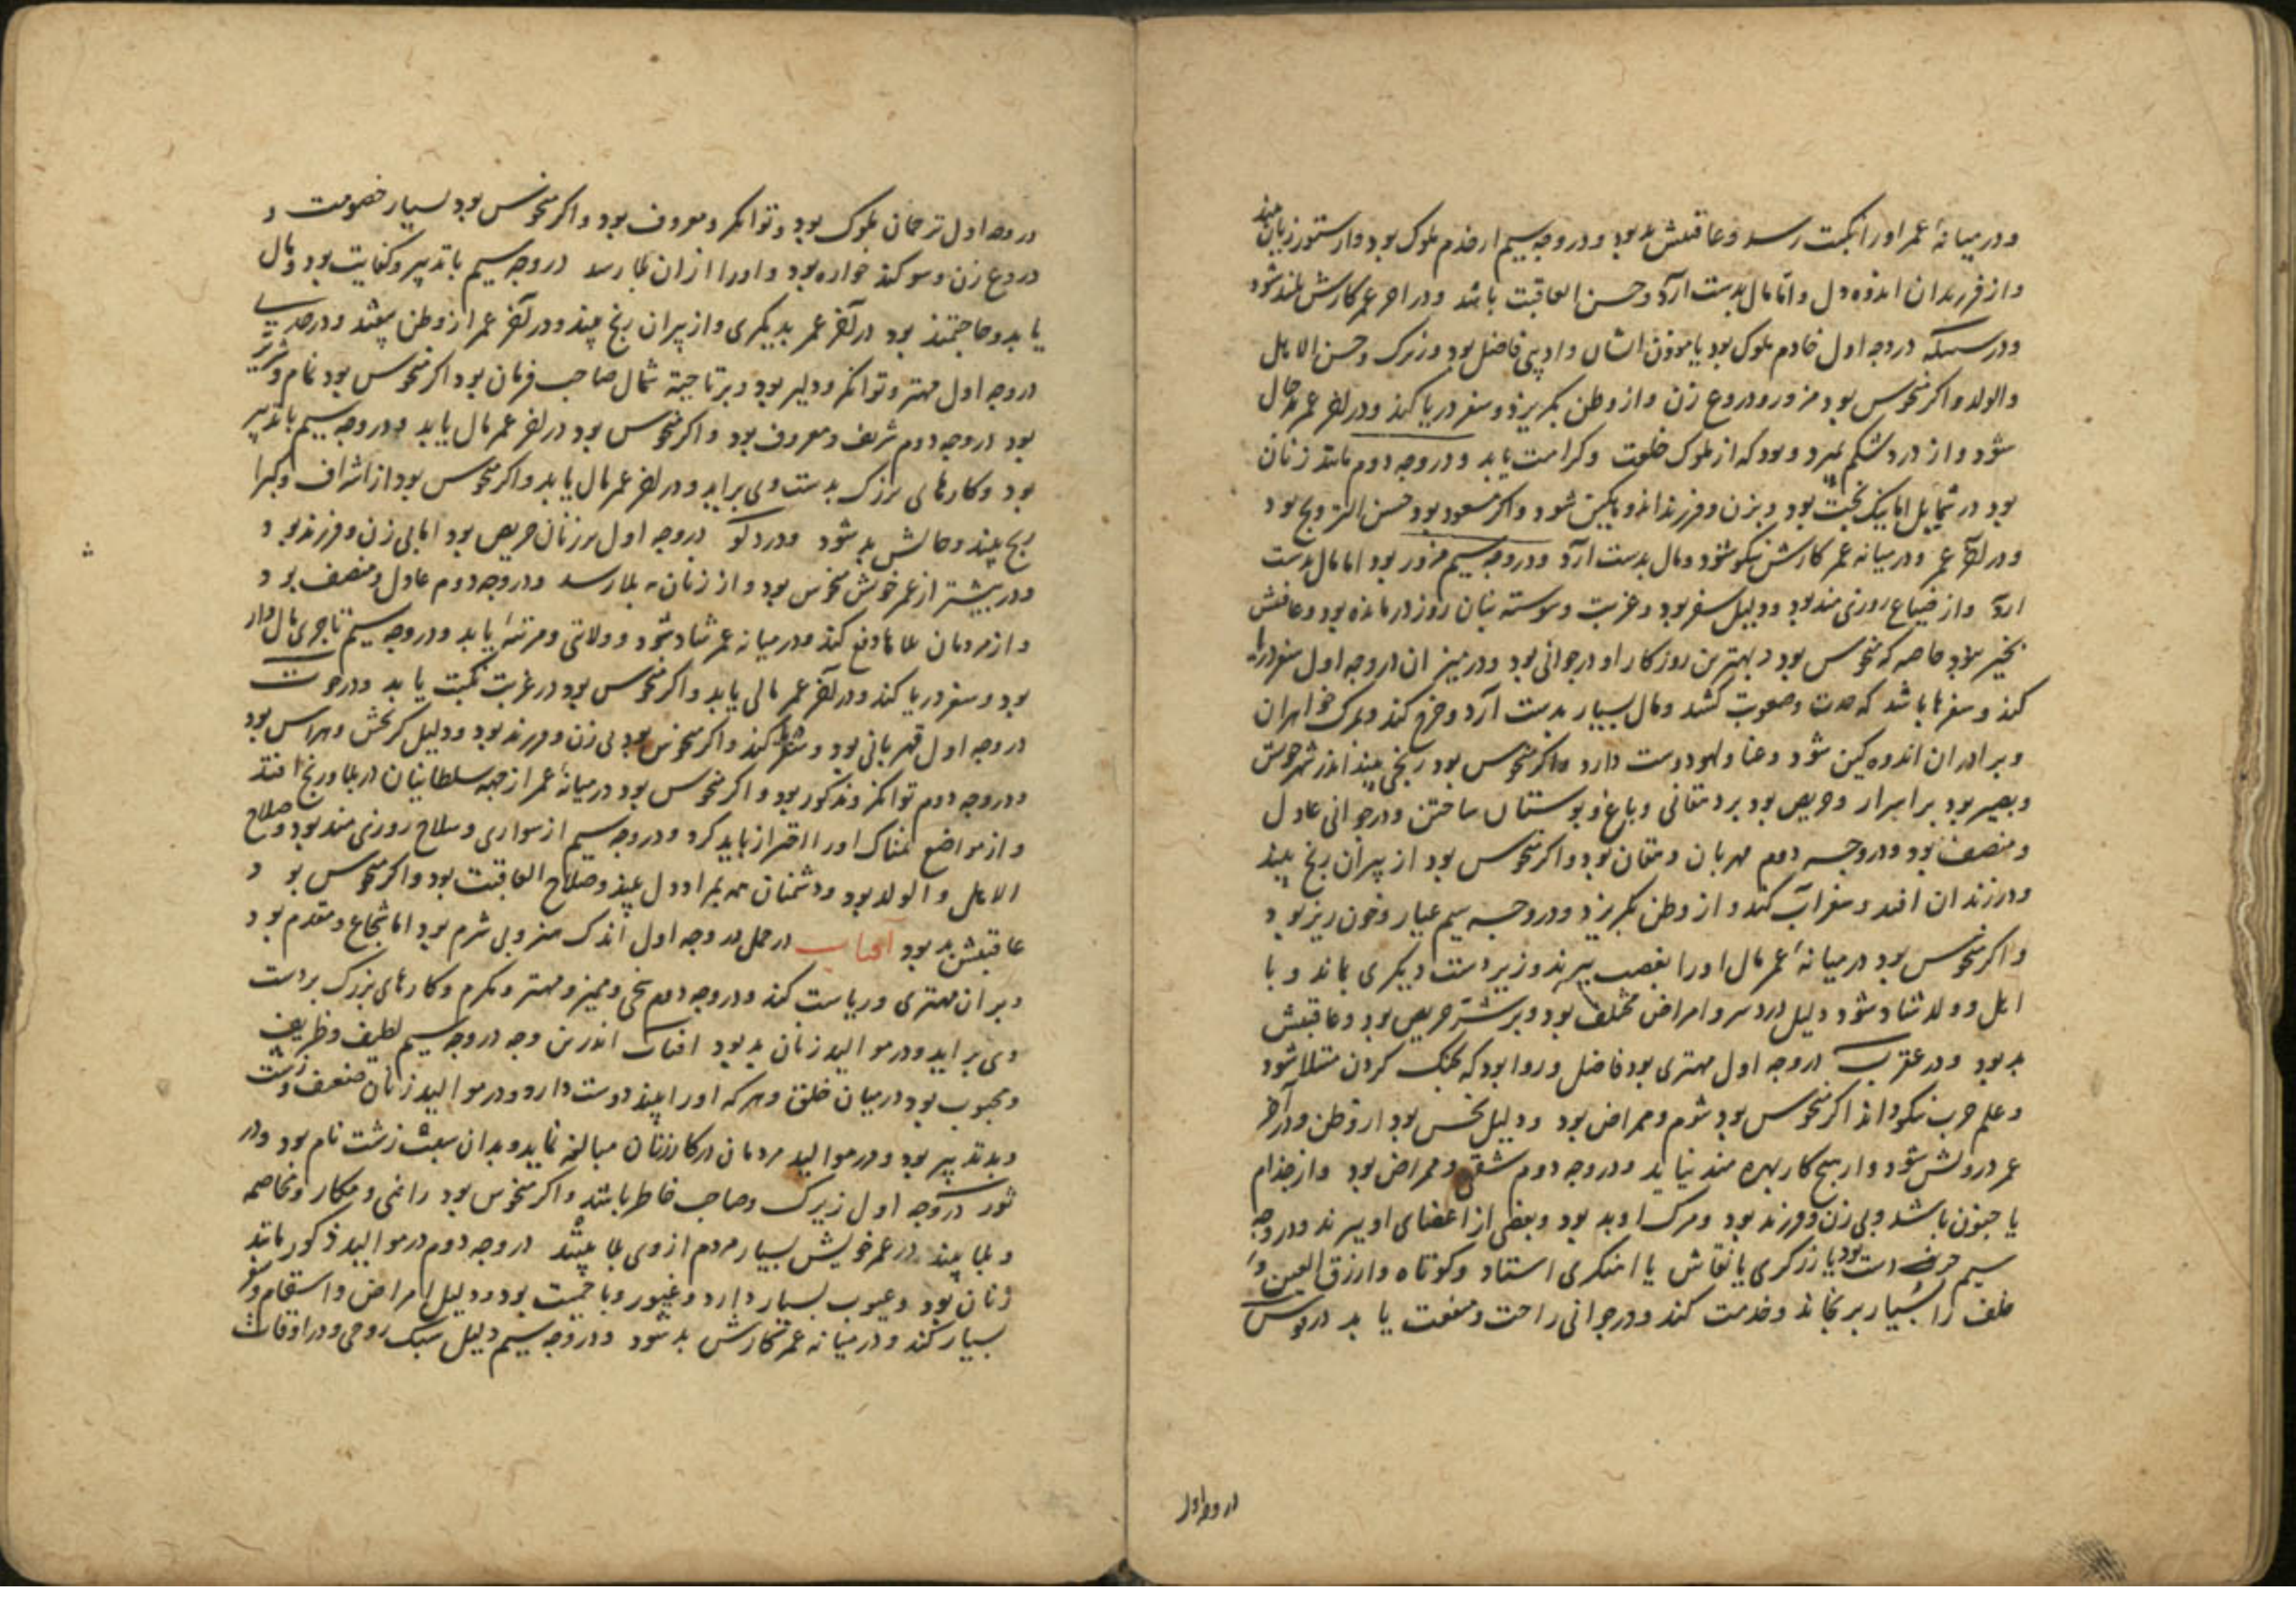 و در میانهٔ عمر او را نکبت رسد و عاقبتش بد بود و در وجه سیم از خدم ملوک بود و از ستور زیان بیند
و از فرزندان اندوه دل و اما مال بدست آرد و حسن العاقبت باشد و در اخر عمر کارش بلند شود
و در سنبله در وجه اول خادم ملوک بود یا موذن ایشان و ادیبی فاضل بود و زیرک و حسن الاهل
والولد و اکر منحوس بود مزور و دروغ زن و از وطن بکریزد و سفر دریا کند و در اخر عمر بد حال
شود و از درد شکم بمیرد و بود که از ملوک خلعت و کرامت یابد و در وجه دوم مانند زنان
بود در شمایل اما نیک بخت بود و بزن و فرزند اندوهکین شود و اکر مسعود بود حسن التزویج بود
و در اخر عمر و در میانه عمر کارش نیکو شود و مال بدست آرد و در وجه سیم مزور بود اما مال بدست
آرد و از ضیاع روزی مند بود و دلیل سفر بود و غربت و پیوسته بنان روز درمانده بود و عاقبتش
بخیر بود خاصه که منحوس بود و بهترین روزکار او در جوانی بود و در میزان در وجه اول سفر دریا
کند و سفرها باشد که مدت و صعوبت کشد و مال بسیار بدست آرد و خرج کند و بمرک خواهران
و برادران اندوهکین شود و غنا و لهو دوست دارد و اکر منحوس بود رنجی بیند اندر شهر خویش
و بصیر بود بر اسرار و حریص بود بر دهقانی و باغ و بوستان ساختن و در جوانی عادل
و منصف بود و در وجه دوم مهربان و دهقان بود و اکر منحوس بود از پیران رنج بیند
و در زندان افتد و سفر آب کند و از وطن بکریزد و در وجه سیم عیار و خون ریز بود
و اکر منحوس بود در میانهٔ عمر مال او را بغصب ببرند و زیر دست دیکری بماند و با
اهل و ولد شاد شود و دلیل درد سر و امراض مختلف بود و بر شر حریص بود و عاقبتش
بد بود و در عقرب در وجه اول مهتری بود فاضل و روا بود که بجنک کردن مبتلا شود
و علم حرب نیکو داند اکر منحوس بود شوم و ممراض بود و دلیل نحس بود از وطن و در آخر
عمر درویش شود و از هیچ کار بهره مند نیاید و در وجه دوم شقی و ممراض بود و از جذام
یا جنون باشد و بی زن و فرزند بود و مرک او بد بود و بعضی از اعضای او ببرند و در وجه
سیم حرف دست بود یا زرکری یا نقاش یا اهنکری استاد و کوتاه و ازرق العین و
خلف را بسیار برنجاند و خدمت کند و در جوانی راحت و منفعت یابد در قوس
در وجه اول
در وجه اول ترجمان ملوک بود و توانکر و معروف بود و اکر منحوس بود بسیار خصومت و
دروغ زن و سوکند خواره بود و او را از ان بلا رسد در وجه سیم با تدبیر و کفایت بود و مال
یابد و حاجتمند بود در آخر عمر بدیکری و از پیران رنج بیند و در آخر عمر از وطن بیفتد و در جدی
در وجه اول مهتر و توانکر و دلیر بود و بر ناحیة شمال صاحب فرمان بود اکر منحوس بود نمام و شریر
بود در وجه دوم شریف و معروف بود و اکر منحوس بود در اخر عمر مال یابد و در وجه سیم با تدبیر
بود و کارهای بزرک بدست وی براید و در اخر عمر مال یابد و اکر منحوس بود از اشراف و کبرا
رنج بیند و حالش بد شود و در دلو در وجه اول بر زنان حریص بود اما بی زن و فرزند بود
و در بیشتر از عمر خویش منحوس بود و از زنان بلا رسد و در وجه دوم عادل و منصف بود
و از مردمان بلاها دفع کند و در میانه عمر شاد شود و ولایتی و مرتبهٔ یابد و در وجه سیم تاجری مال دار
بود و سفر دریا کند و در آخر عمر مالی یابد و اکر منحوس بود در غربت نکبت یابد و در حوت
در وجه اول قهرمانی بود و سفرها کند و اکر منحوس بود بی زن و فرزند بود و دلیل کریختن و هراس بود
و در وجه دوم توانکر و مذکور بود و اکر منحوس بود در میانهٔ عمر از جهه سلطانیان در بلا و رنج افتد
و از مواضع نمناک او را احتراز باید کرد و در وجه سیم از سواری و سلاح روزی مند بود و صلاح
الاهل و الولد بود و دشمنان همه بمراد دل بیند و صلاح العاقبت بود و اکر منحوس بود
عاقبتش بد بود آفتاب در حمل در وجه اول اندک منز و بی شرم بود اما شجاع و مقدم بود
و بر ان مهتری و ریاست کند و در وجه دوم سخی و ممیز و مهتر و مکرم و کارهای بزرک بر دست
وی براید و در موالید زنان بد بود افتاب اندرین وجه در وجه سیم لطیف و ظریف
و محبوب بود در میان خلق و هر که او را بیند دوست دارد و در موالید زنان ضعف و زشت
و بد تدبیر بود و در موالید مردمان در کار زنان مبالغه نماید و بدان سبب زشت نام بود و در
ثور در وجه اول زیرک و صاحب خاطر باشد و اکر منحوس بود راغی و مکار و مخاصم
و بلا بیند در عمر خویش بسیار مردم از وی بلا بینند در وجه دوم در موالید ذکور مانند
زنان بود و عیوب بسیار دارد و غیور و با حمیت بود و دلیل امراض و اسقام و سفر
بسیار کند و در میانه عمر کارش بد شود و در وجه سیم دلیل سبک روحی و در اوقات